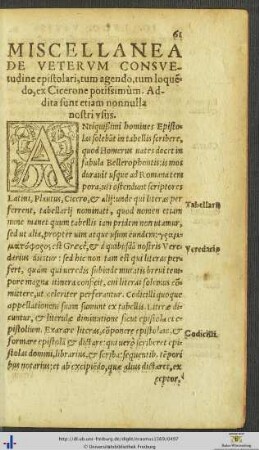 61
MISCELLANEA
DE VETERVM CONSVE-
tudine epistolari, tum agendo, tum loquē-
do, ex Cicerone potissimùm. Ad-
dita sunt etiam nonnulla
nostri vsus.
ANtiquissimi homines Episto-
las solebāt in tabellis scribere,
quod Homerus uates docet in
fabula Bellerophontis: is mos
durauit usque ad Romana tem
pora, uti ostendunt scriptores
Latini, Plautus, Cicero, & alij: unde qui literas per
ferrent, tabellarij nominati, quod nomen etiam
nunc manet quum tabellis iam pridem non utamur,
sed ut alia, propter uim atque usum
est Græcè, & à quibusdā nostris Vere
darius dicitur: sed hic non tam est qui literas per-
fert, quàm qui ueredis subinde mutatis breui tem
pore magna itinera conficit, cui literas solemus cō-
mittere, ut celeriter perferantur. Codicilli quoque
appellationem suam sumunt ex tabellis. Literæ di-
cuntur, & literulæ diminutione sicut epistola et e-
pistolium. Exarare literas, cōponere epistolam, &
formare epistolā & dictare: qui uerò scriberet epi-
stolas domini, librarius, & scriba: sequentib. tēpori
bus notarius: et ab excipiēdo, quæ alius dictaret, ex
ceptor,
Tabellarij
Veredarij
Codicilli.
http://dl.ub.uni-freiburg.de/diglit/erasmus1569/0497
© Universitätsbibliothek Freiburg